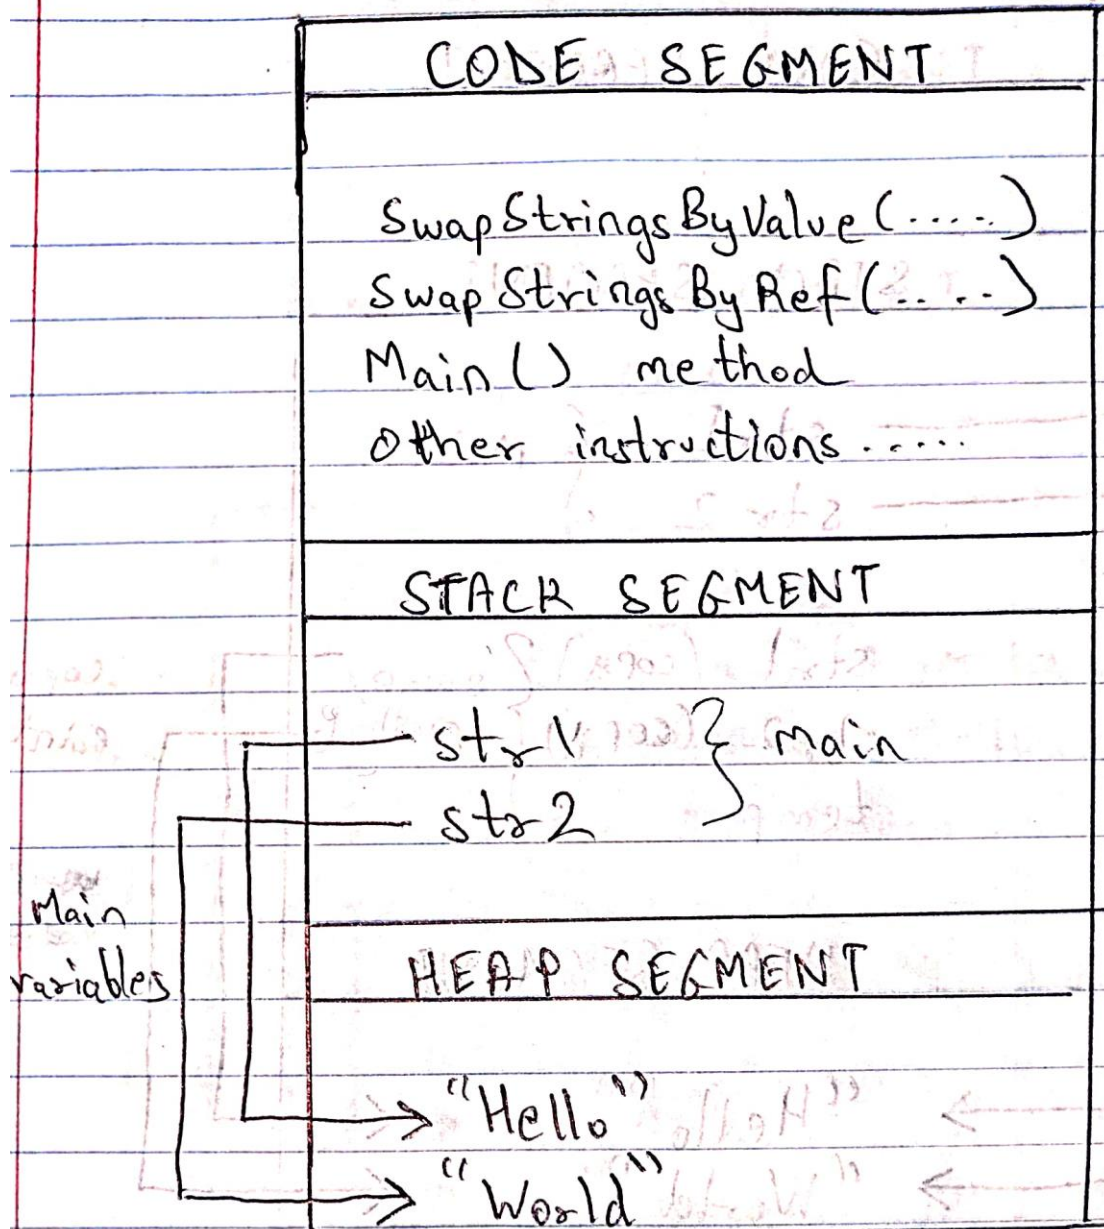 CODE SEGMENT
SwapStringsByValue(.....)
SwapStringsByRef(.....)
Main() method
other instructions.....
STACK SEGMENT
str1 } main
str2
Main
variables
HEAP SEGMENT
"Hello"
"World"